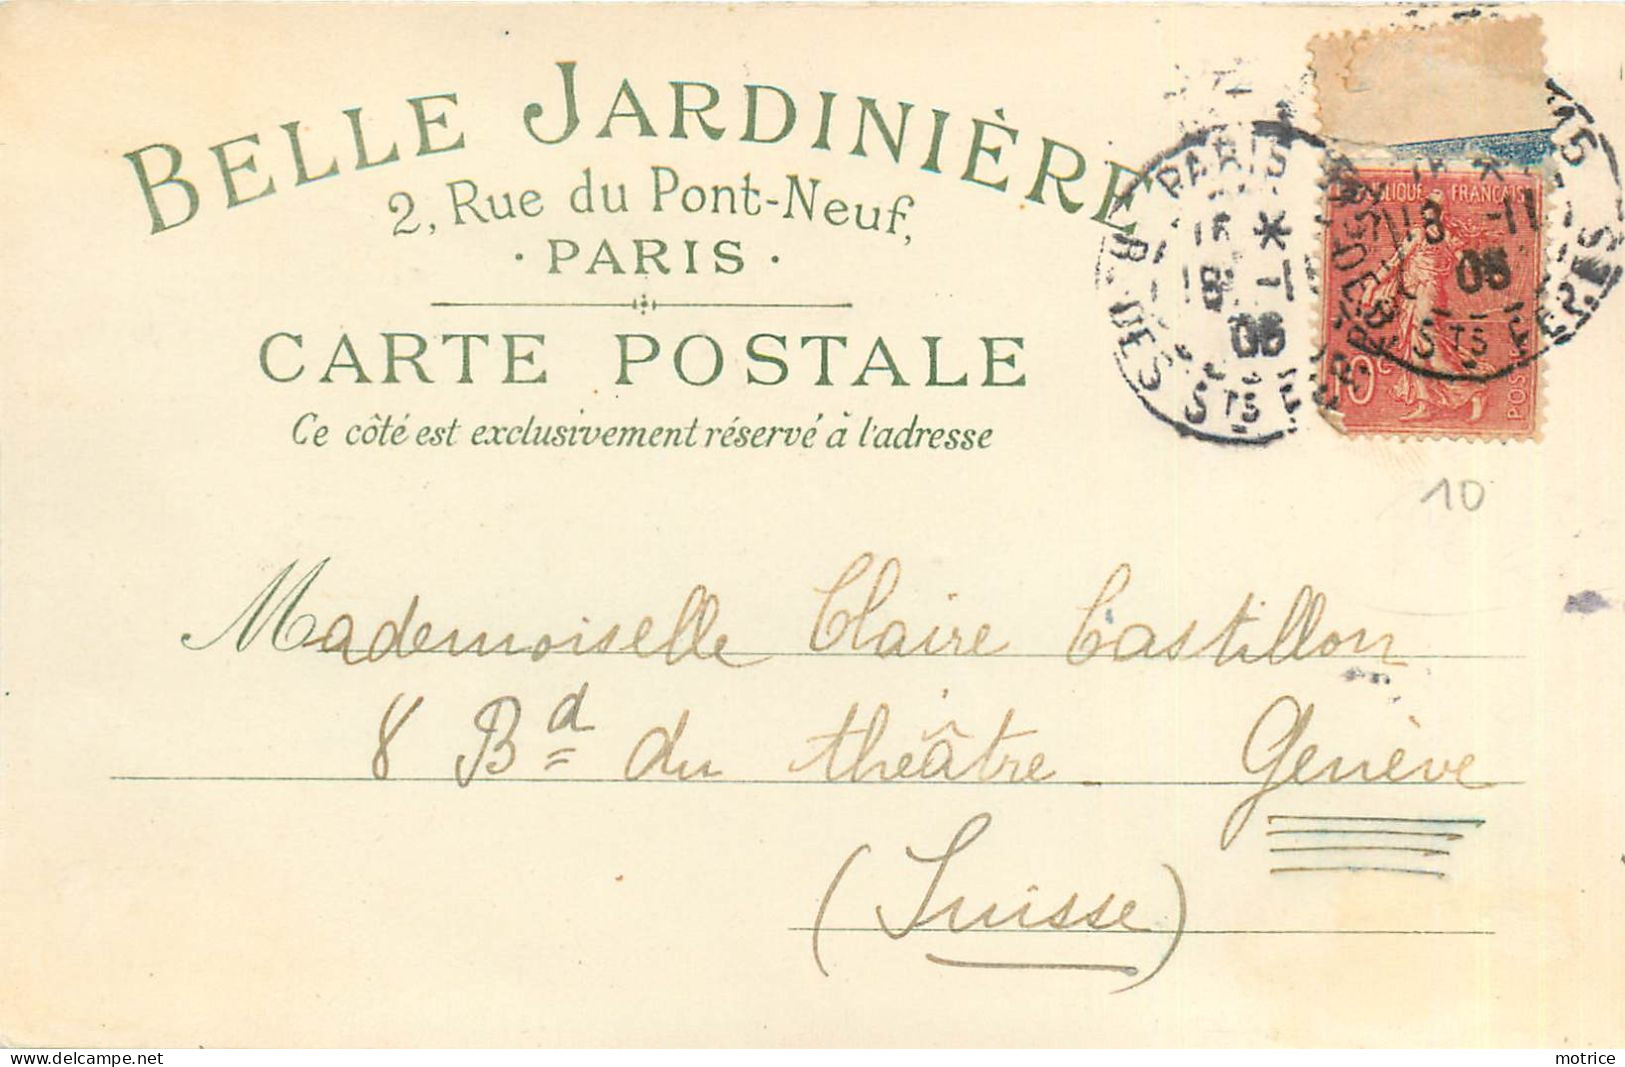 BELLE JARDINIÈRE
2, Rue du Pont-Neuf,
· PARIS ·
CARTE POSTALE
Ce côté est exclusivement réservé à l'adresse
PARIS
18
06
R. DES STS
RÉPUBLIQUE FRANÇAISE
18 -11
06
STS PÈRES
10 c
POSTES
10
Mademoiselle Claire Castillon
8 Bd du théâtre - Genève
(Suisse)
motrice